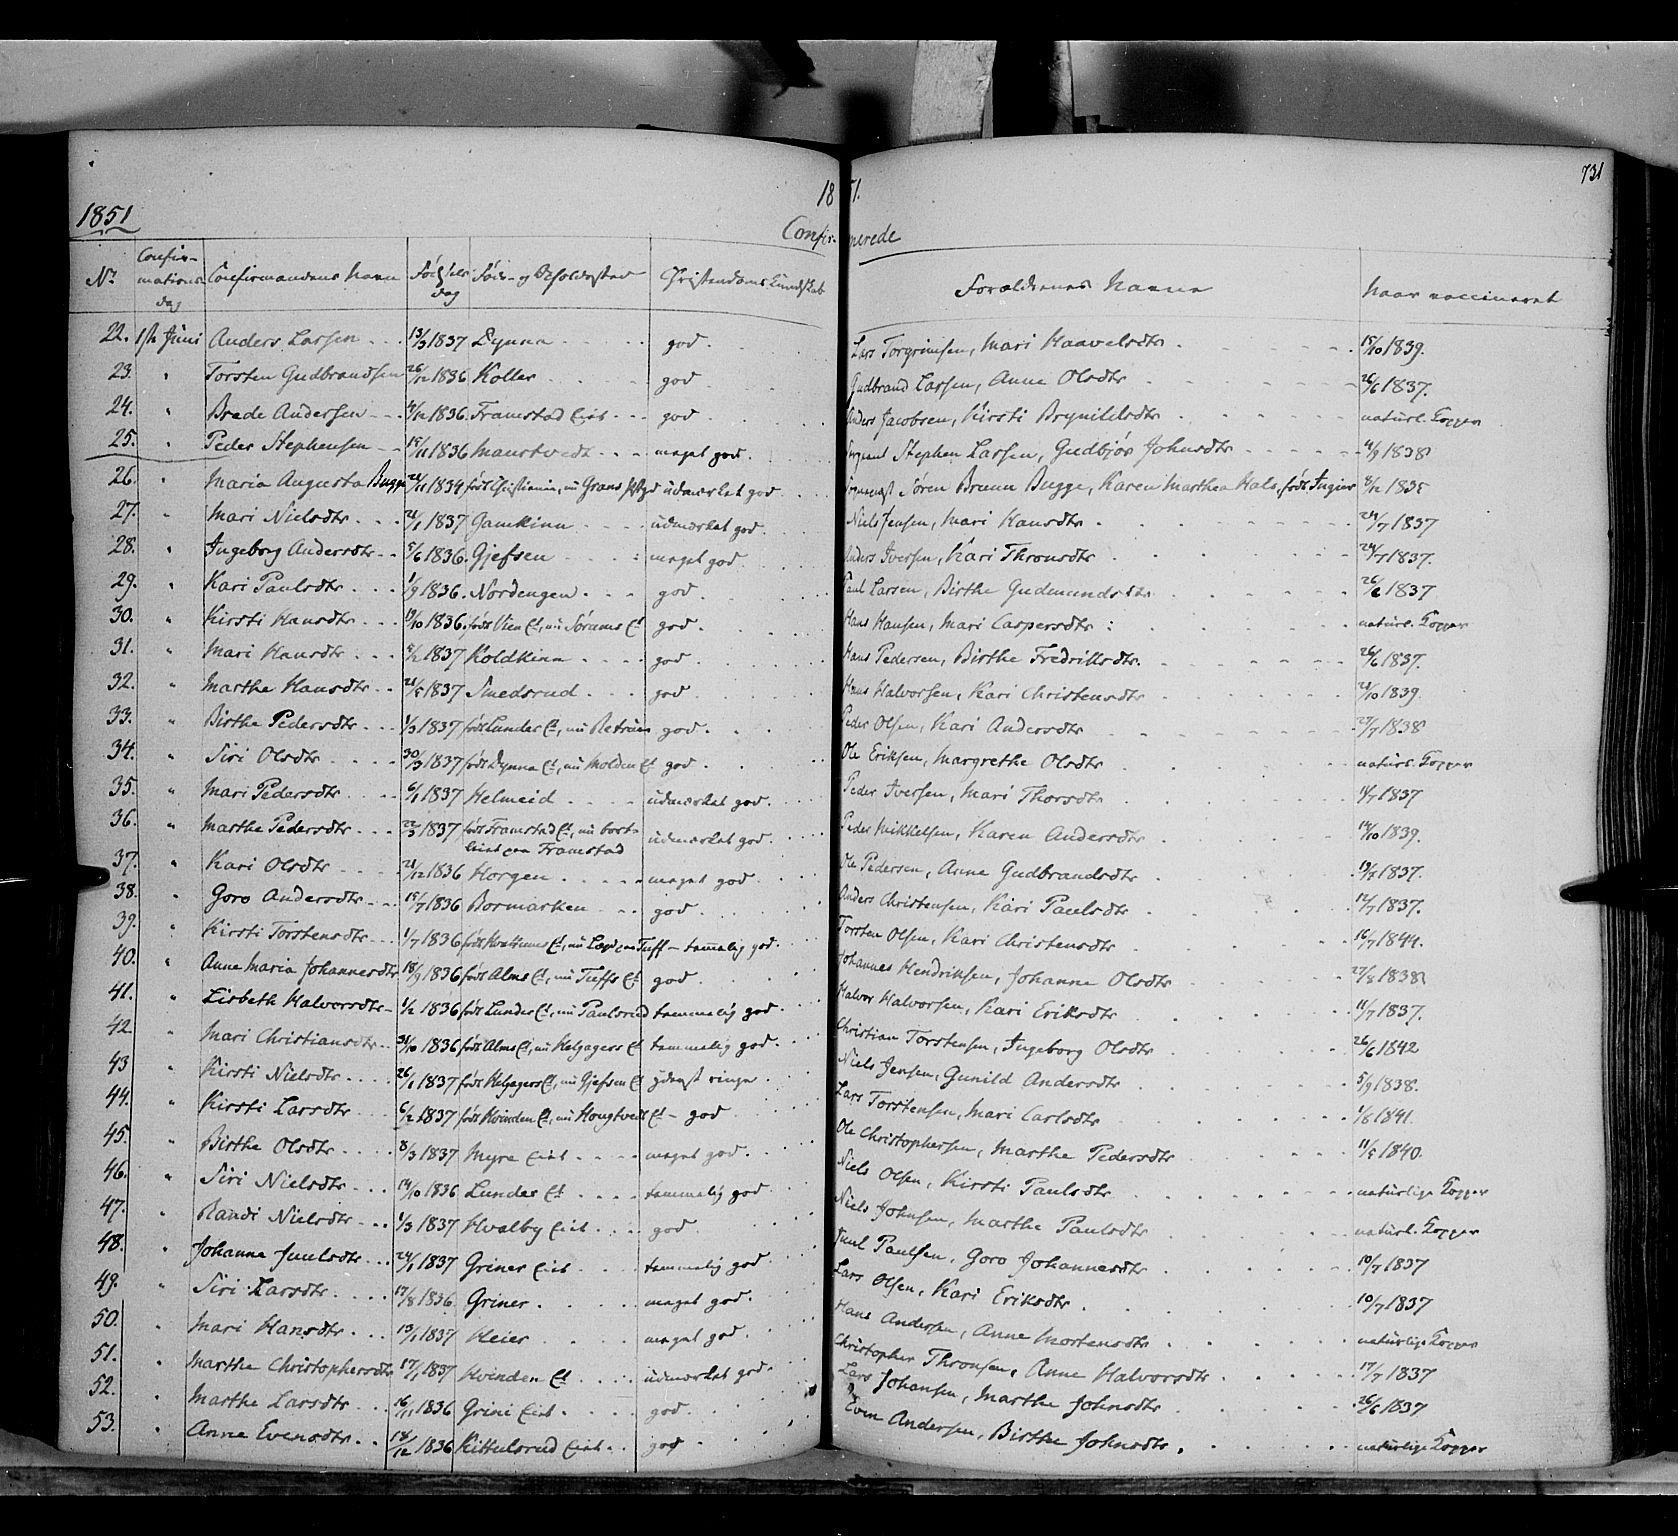 731
1851
1851.
Confirmerede
No. Confirmations Dag Confirmandens Navn Fødsels Dag Føde- og Opholdssted Christendoms Kundskab Forældrenes Navne Naar vaccineret
22. 1ste Juni Anders Larsen 13/3 1837 Dynna god. Lars Torgrimsen, Mari Haavelsdtr 15/10 1839.
23. " Torsten Gudbrandsen 26/12 1836 Koller god. Gudbrand Larsen, Anne Olsdtr 26/6 1837.
24. " Brede Andersen 4/12 1836. Framstad Eiet god. Anders Jacobsen, Kirsti Brynildsdtr naturl. Kopper
25. " Peder Stephensen 15/11 1836 meget god. Sergeant Stephen Larsen, Gudbjør Johnsdtr 4/9 1838
26. " Maria Augusta Bugge 1834 født Christiania, nu Grans Pstgd udmærket god Sogneprest Søren Bruun Bugge, Karen Marthea Hals, født 8/12 1835
27. " Mari Nielsdtr 21/1 1837 Gamkinn udmærket god. Niels Jensen, Mari Hansdtr 24/7 1837
28. " Ingeborg Andersdtr 5/6 1836. Gjefsen meget god. Anders Iversen, Kari Thronsdtr 24/7 1837.
29. " Kari Paulsdtr 1/9 1836. Nordengen god. Paul Larsen, Birthe Gudmundsdtr 26/6 1837
30. " Kirsti Hansdtr 19/10 1836. født Vien Et, nu Sørums Et god. Hans Hansen, Mari Caspersdtr naturl. Kopper
31. " Mari Hansdtr 5/2 1837 Koldkinn god. Hans Pedersen, Birthe Fredriksdtr. 26/6 1837.
32. " Marthe Hansdtr 21/5 1837 Smedsrud god. Hans Halvorsen, Kari Christensdtr 21/10 1839.
33. " Birthe Pedersdtr 1/3 1837 født Lunder Et, nu god. Peder Olsen, Kari Andersdtr 27/7 1838
34. " Siri Olsdtr 30/3 1837 født Dynna Et, nu Molden Et god. Ole Eriksen, Margrethe Olsdtr naturl. Kopper
35. " Mari Pedersdtr 6/1 1837 Helmeid udmærket god. Peder Iversen, Mari Thorsdtr 1837
36. " Marthe Pedersdtr 22/3 1837 født Framstad Et, nu bort-
leiet paa Framstad udmærket god. Peder Mikkelsen, Karen Andersdtr 14/10 1839.
37. " Kari Olsdtr 21/12 1836 Horgen meget god. Ole Pedersen, Anne Gudbrandsdtr 19/5 1837.
38. " Goro Andersdtr 15/7 1836 Bormarken god. Anders Christensen, Kari Paulsdtr 17/7 1837.
39. " Kirsti Torstensdtr 1/7 1836 tammelig god. Torsten Olsen, Kari Christensdtr 16/7 1844.
40. " Anne Maria Johannesdtr 18/9 1836 født Alms Et, nu Tuffs Et god. Johannes Hendriksen, Johanne Olsdtr 27/8 1838
41. " Lisbeth Halvorsdtr 1/2 1836 født Lunder Et, nu Paulsrud tammelig god. Halvor Halvorsen, Kari Eriksdtr 11/7 1837.
42 " Mari Christiansdtr 31/10 1836 født Alms Et, nu Helgagers Et tammelig god. Christian Torstensen, Ingeborg Olsdtr 26/6 1842
43 " Kirsti Nielsdtr 26/1 1837 født Helgagers Et, nu Gjefsen Et ringe. Niels Jensen, Gunild Andersdtr 5/9 1838.
44. " Kirsti Larsdtr 6/2 1837 født Hvinden Et, nu Hougtvedt Et god Lars Torstensen, Mari Carlsdtr 1/6 1841.
45. " Birthe Olsdtr 8/3 1837 Myre Eiet meget god. Ole Christophersen, Marthe Pedersdtr 11/5 1840.
46. " Siri Nielsdtr 14/10 1836 Lunder Et tammelig god Niels Olsen, Kirsti Paulsdtr naturlige Kopper
47. " Randi Nielsdtr 1/3 1837 Hvalby Eiet god. Niels Johnsen, Marthe Paulsdtr naturl. Kopper
48. " Johanne Juulsdtr 24/1 1837 Griner Eiet tammelig god Juul Paulsen, Goro Johannesdtr 10/7 1837
49. " Siri Larsdtr 17/8 1836 Griner. meget god. Lars Olsen, Kari Eriksdtr. 10/7 1837
50. " Mari Hansdtr 13/1 1837 Heier meget god. Hans Andersen, Anne Mortensdtr naturlige Kopper
51. " Marthe Christophersdtr 17/1 1837 Hvinden Et udmærket god. Christopher Thronsen, Anne Halvorsdtr 17/7 1837
52. " Marthe Larsdtr 16/11 1836 Grini Eiet god Lars Johansen, Marthe Johnsdtr 26/6 1837
53. " Anne Evensdtr 18/12 1836 Kittelsrud Eiet god Even Andersen, Birthe Johnsdtr. naturlige Kopper